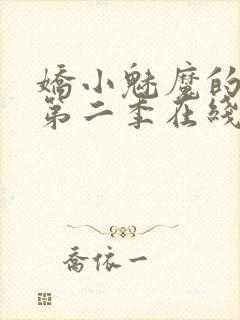 嬌小魅魔的
第二季在綫
喬依一